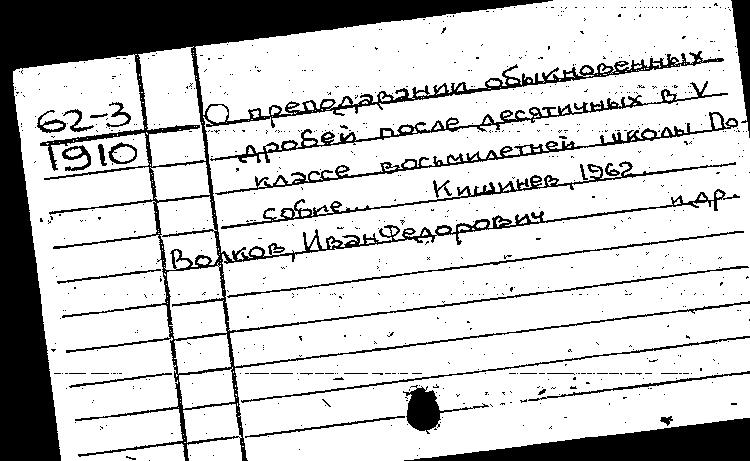 62-3
1910
О преподавании обыкновенных
дробей после десятичных в V
классе восьмилетней школы По-
собие... Кишинев, 1962.
Волков, Иван Федорович и др.